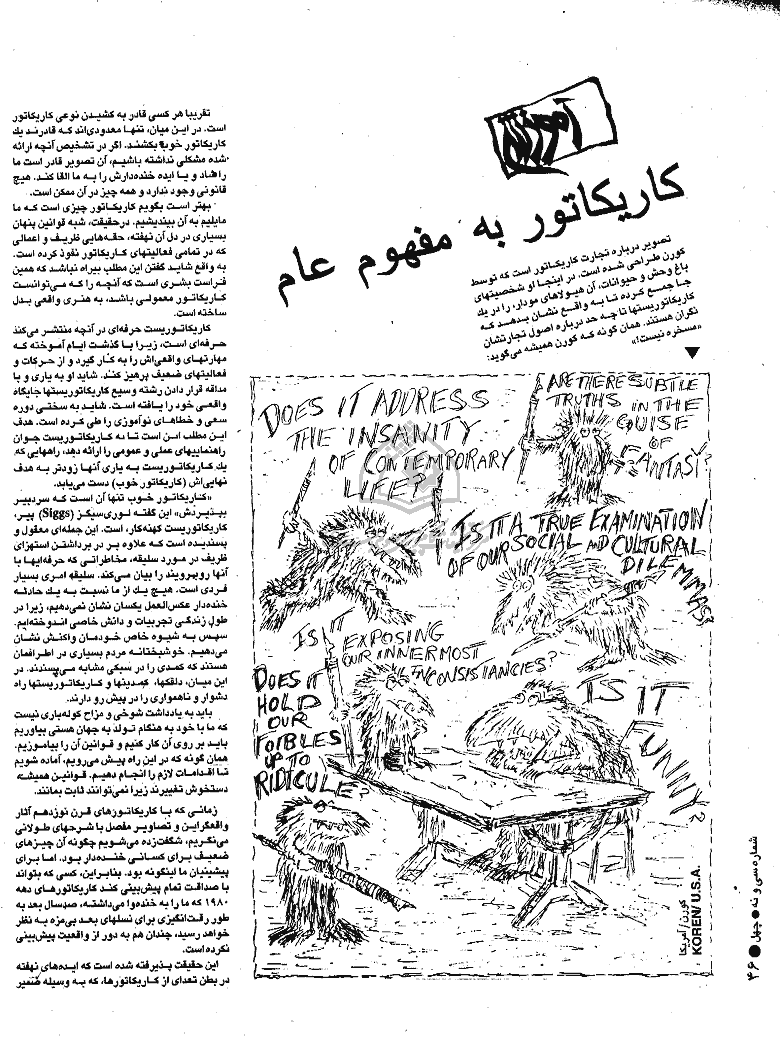 آموزش
کاریکاتور به مفهوم عام
تصویر درباره تجارت کاریکاتور است که توسط
کورن طراحی شده است. در اینجا او شخصیتهای
باغ وحش و حیوانات، آن هیولاهای مودار، را در یک
جا جمع کرده تا به واقع نشان بدهد که
کاریکاتوریستها تا چه حد درباره اصول تجارتشان
نگران هستند. همان گونه که کورن همیشه می‌گوید:
«مسخره نیست!»
DOES IT ADDRESS
THE INSANITY
OF CONTEMPORARY
LIFE?
ARE THERE SUBTLE
TRUTHS IN THE
GUISE
OF
FANTASY?
IS IT A TRUE EXAMINATION
OF OUR SOCIAL AND CULTURAL
DILEMMAS?
IS IT
EXPOSING
OUR INNERMOST
INCONSISTANCIES?
DOES IT
HOLD
OUR
FOIBLES
UP TO
RIDICULE?
IS IT
FUNNY?
کورن/ آمریکا
KOREN/ U.S.A.
تقریبا هر کسی قادر به کشیدن نوعی کاریکاتور
است. در این میان، تنها معدودی‌اند که قادرند یك
کاریکاتور خوب بکشند. اگر در تشخیص آنچه ارائه
شده مشکلی نداشته باشیم، آن تصویر قادر است ما
را شاد و یا ایده خنده‌دارش را به ما القا کند. هیچ
قانونی وجود ندارد و همه چیز در آن ممکن است.
بهتر است بگویم کاریکاتور چیزی است که ما
مایلیم به آن بیندیشیم. درحقیقت، شبه قوانین پنهان
بسیاری در دل آن نهفته، حقه‌هایی ظریف و اعمالی
که در تمامی فعالیتهای کاریکاتور نفوذ کرده است.
به واقع شاید گفتن این مطلب بیراه نباشد که همین
فراست بشری است که آنچه را که می‌توانست
کاریکاتور معمولی باشد، به هنری واقعی بدل
ساخته است.
کاریکاتوریست حرفه‌ای در آنچه منتشر می‌کند
حرفه‌ای است، زیرا با گذشت ایام آموخته که
مهارتهای واقعی‌اش را به کار گیرد و از حرکات و
فعالیتهای ضعیف پرهیز کند. شاید او به یاری و با
مداقه قرار دادن رشته وسیع کاریکاتوریستها جایگاه
واقعی خود را یافته است. شاید به سختی دوره
سعی و خطاهای نوآموزی را طی کرده است. هدف
این مطلب این است تا به کاریکاتوریست جوان
راهنماییهای عملی و عمومی را ارائه دهد، راههایی که
یك کاریکاتوریست به یاری آنها زودتر به هدف
نهایی‌اش (کاریکاتور خوب) دست می‌یابد.
«کاریکاتور خوب تنها آن است که سردبیر
بپذیردش» این گفته لوری‌سیگز (Siggs) پیر،
کاریکاتوریست کهنه‌کار، است. این جمله‌ای معقول و
پسندیده است که علاوه بر در برداشتن استهزای
ظریف در مورد سلیقه، مخاطراتی که حرفه‌ایها با
آنها روبرویند را بیان می‌کند. سلیقه امری بسیار
فردی است. هیچ یك از ما نسبت به یك حادثه
خنده‌دار عکس‌العمل یکسان نشان نمی‌دهیم، زیرا در
طول زندگی تجربیات و دانش خاصی اندوخته‌ایم.
سپس به شیوه خاص خودمان واکنش نشان
می‌دهیم. خوشبختانه مردم بسیاری در اطرافمان
هستند که کمدی را در سبکی مشابه می‌پسندند. در
این میان، دلقکها، کمدینها و کاریکاتوریستها راه
دشوار و ناهمواری را در پیش رو دارند.
باید به یادداشت شوخی و مزاح کوله‌باری نیست
که ما با خود به هنگام تولد به جهان هستی بیاوریم
باید بر روی آن کار کنیم و قوانین آن را بیاموزیم.
همان گونه که در این راه پیش می‌رویم، آماده شویم
تا اقدامات لازم را انجام دهیم. قوانین همیشه
دستخوش تغییرند زیرا نمی‌توانند ثابت بمانند.
زمانی که با کاریکاتورهای قرن نوزدهم آثار
واقعگراین و تصاویر مفصل با شرحهای طولانی
می‌نگریم، شگفت‌زده می‌شویم چگونه آن چیزهای
ضعیف برای کسانی خنده‌دار بود. اما برای
پیشینیان ما اینگونه بود. بنابراین، کسی که بتواند
با صداقت تمام پیش‌بینی کند کاریکاتورهای دهه
۱۹۸۰ که ما را به خنده‌وا می‌داشته، صدسال بعد به
طور رقت‌انگیزی برای نسلهای بعد بی‌مزه به نظر
خواهد رسید، چندان هم به دور از واقعیت پیش‌بینی
نکرده است.
این حقیقت پذیرفته شده است که ایده‌های نهفته
در بطن تعدای از کاریکاتورها، که به وسیله ضمیر
شماره سی و نه ● چهل ● ۴۶